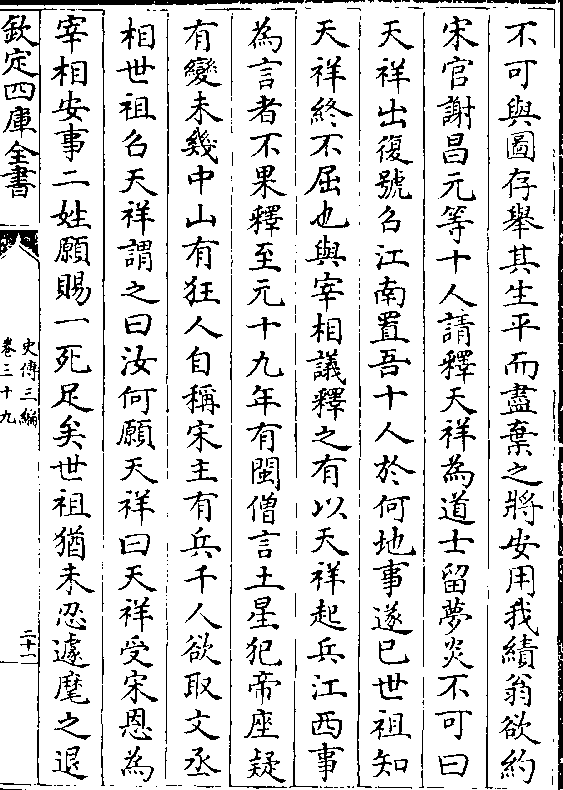 不可與圖存舉其生平而盡棄之將安用我績翁欲約
宋官謝昌元等十人請釋天祥為道士留夢炎不可曰
天祥出復號召江南置吾十人於何地事遂已世祖知
天祥終不屈也與宰相議釋之有以天祥起兵江西事
為言者不果釋至元十九年有閩僧言土星犯帝座疑
有變未幾中山有狂人自稱宋主有兵千人欲取文丞
相世祖召天祥謂之曰汝何願天祥曰天祥受宋恩為
宰相安事二姓願賜一死足矣世祖猶未忍遽麾之退
欽定四庫全書
史傳三編
卷三十九
二十一